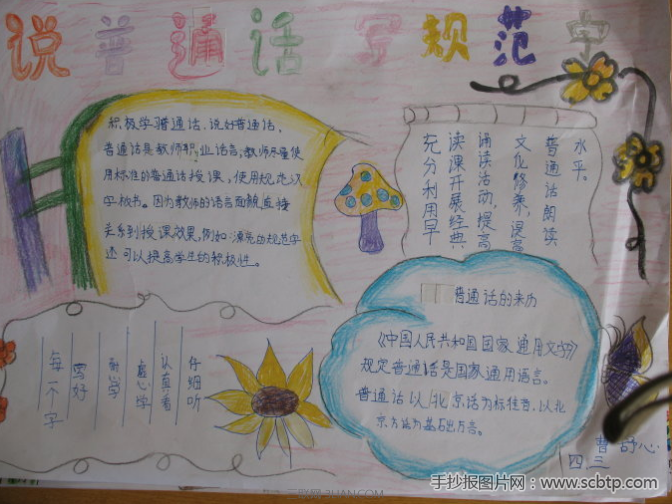 说普通话 写规范字
积极学习普通话、说好普通话,
普通话是教师职业语言,教师尽量使
用标准的普通话授课,使用规范汉
字板书。因为教师的语言面貌直接
关系到授课效果,例如:漂亮的规范字
还可以提高学生的积极性。
充分利用早
读课开展经典
诵读活动,提高
文化修养,提高
普通话朗读
水平。
普通话的来历
《中国人民共和国国家通用文字》
规定普通话是国家通用语言。
普通话以北京话为标准音,以北
京方话为基础方言。
仔细听
认真看
虚心学
写好
每个字
曹舒心
四.三
手抄报图片网:www.scbtp.com